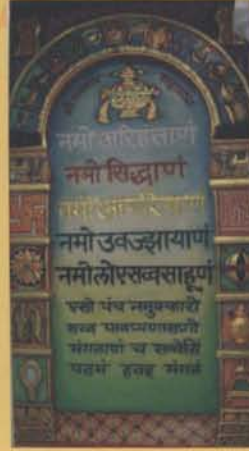 नमो अरिहंताणं
नमो सिद्धाणं
नमो आयरियाणं
नमो उवज्झायाणं
नमो लोए सव्वसाहूणं
एसो पंच नमुक्कारो
सव्व पावप्पणासणो
मंगलाणं च सव्वेसिं
पढमं हवइ मंगलं